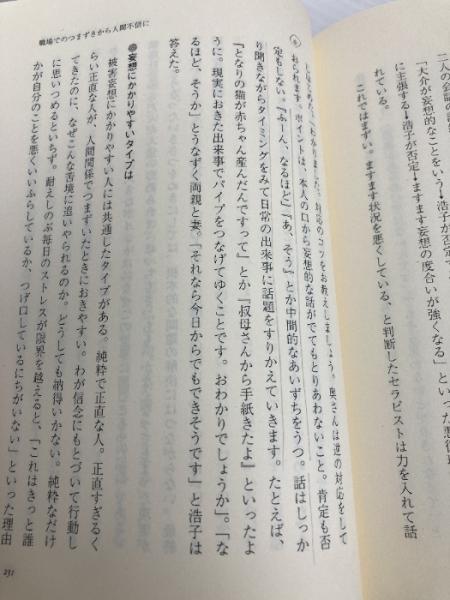 二人の会話の
「大介が妄想的なことをいう→浩子が否定→ますます妄想の度合いが強くなる」といった悪循
に主張する→浩子が否定
れている。
これではまずい。ますます状況を悪くしている、と判断したセラピストは力を入れて話
職場でのつまずきから人間不信に
わかりました。対応のコツをお教えしましょう。奥さんは逆の対応をして
おられます。ポイントは、本人の口から妄想的な話がでてもとりあわないこと。肯定も否
定もしない。『ふーん、なるほど』『あ、そう』とか中間的なあいづちをうつ。話はしっか
り聞きながらタイミングをみて日常の出来事に話題をすりかえていきます。たとえば、
『となりの猫が赤ちゃん産んだんですって』とか『叔母さんから手紙きたよ』といったよ
うに。現実におきた出来事でパイプをつなげてゆくことです。おわかりでしょうか」。「な
るほど、そうか」とうなずく両親と妻。「それなら今日からでもできそうです」と浩子は
答えた。
●妄想にかかりやすいタイプは
被害妄想にかかりやすい人には共通したタイプがある。純粋で正直な人。正直すぎるく
らい正直な人が、人間関係でつまずいたときにおきやすい。わが信念にもとづいて行動し
てきたのに、なぜこんな苦境に追いやられるのか。どうしても納得いかない。純粋なだけ
に思いつめるといちず。耐えしのぶ毎日のストレスが限界を越えると、「これはきっと誰
かが自分のことを悪くいいふらしているか、つげ口しているにちがいない」といった理由
231